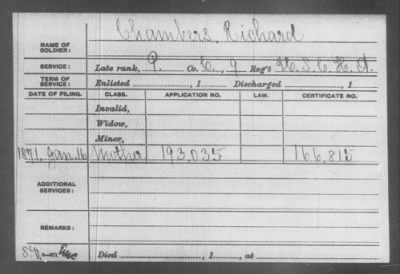 Chambers, Richard
NAME OF SOLDIER:
SERVICE: Late rank, P. Co. C, 9 Reg't U.S.C.H.A.
TERM OF SERVICE: Enlisted , 1 Discharged , 1
DATE OF FILING. CLASS. APPLICATION NO. LAW. CERTIFICATE NO.
Invalid,
Widow,
Minor,
1871. Jan. 16 Mother 193.035 166,815
ADDITIONAL SERVICES:
REMARKS:
Died , 1 , at